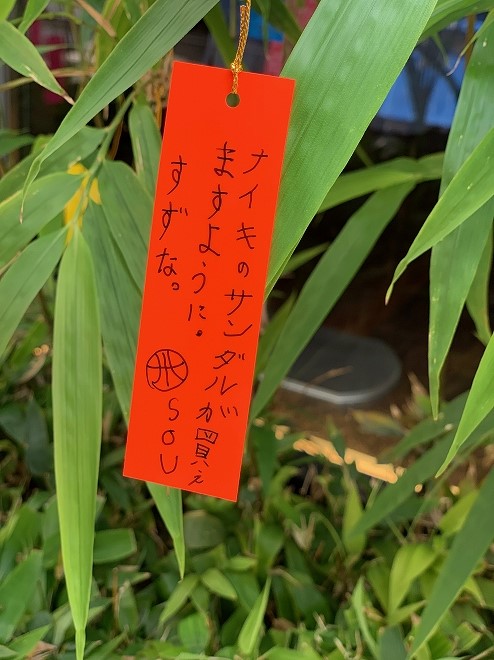 ナイキのサンダルが買え
ますように。
すずな。 SOU